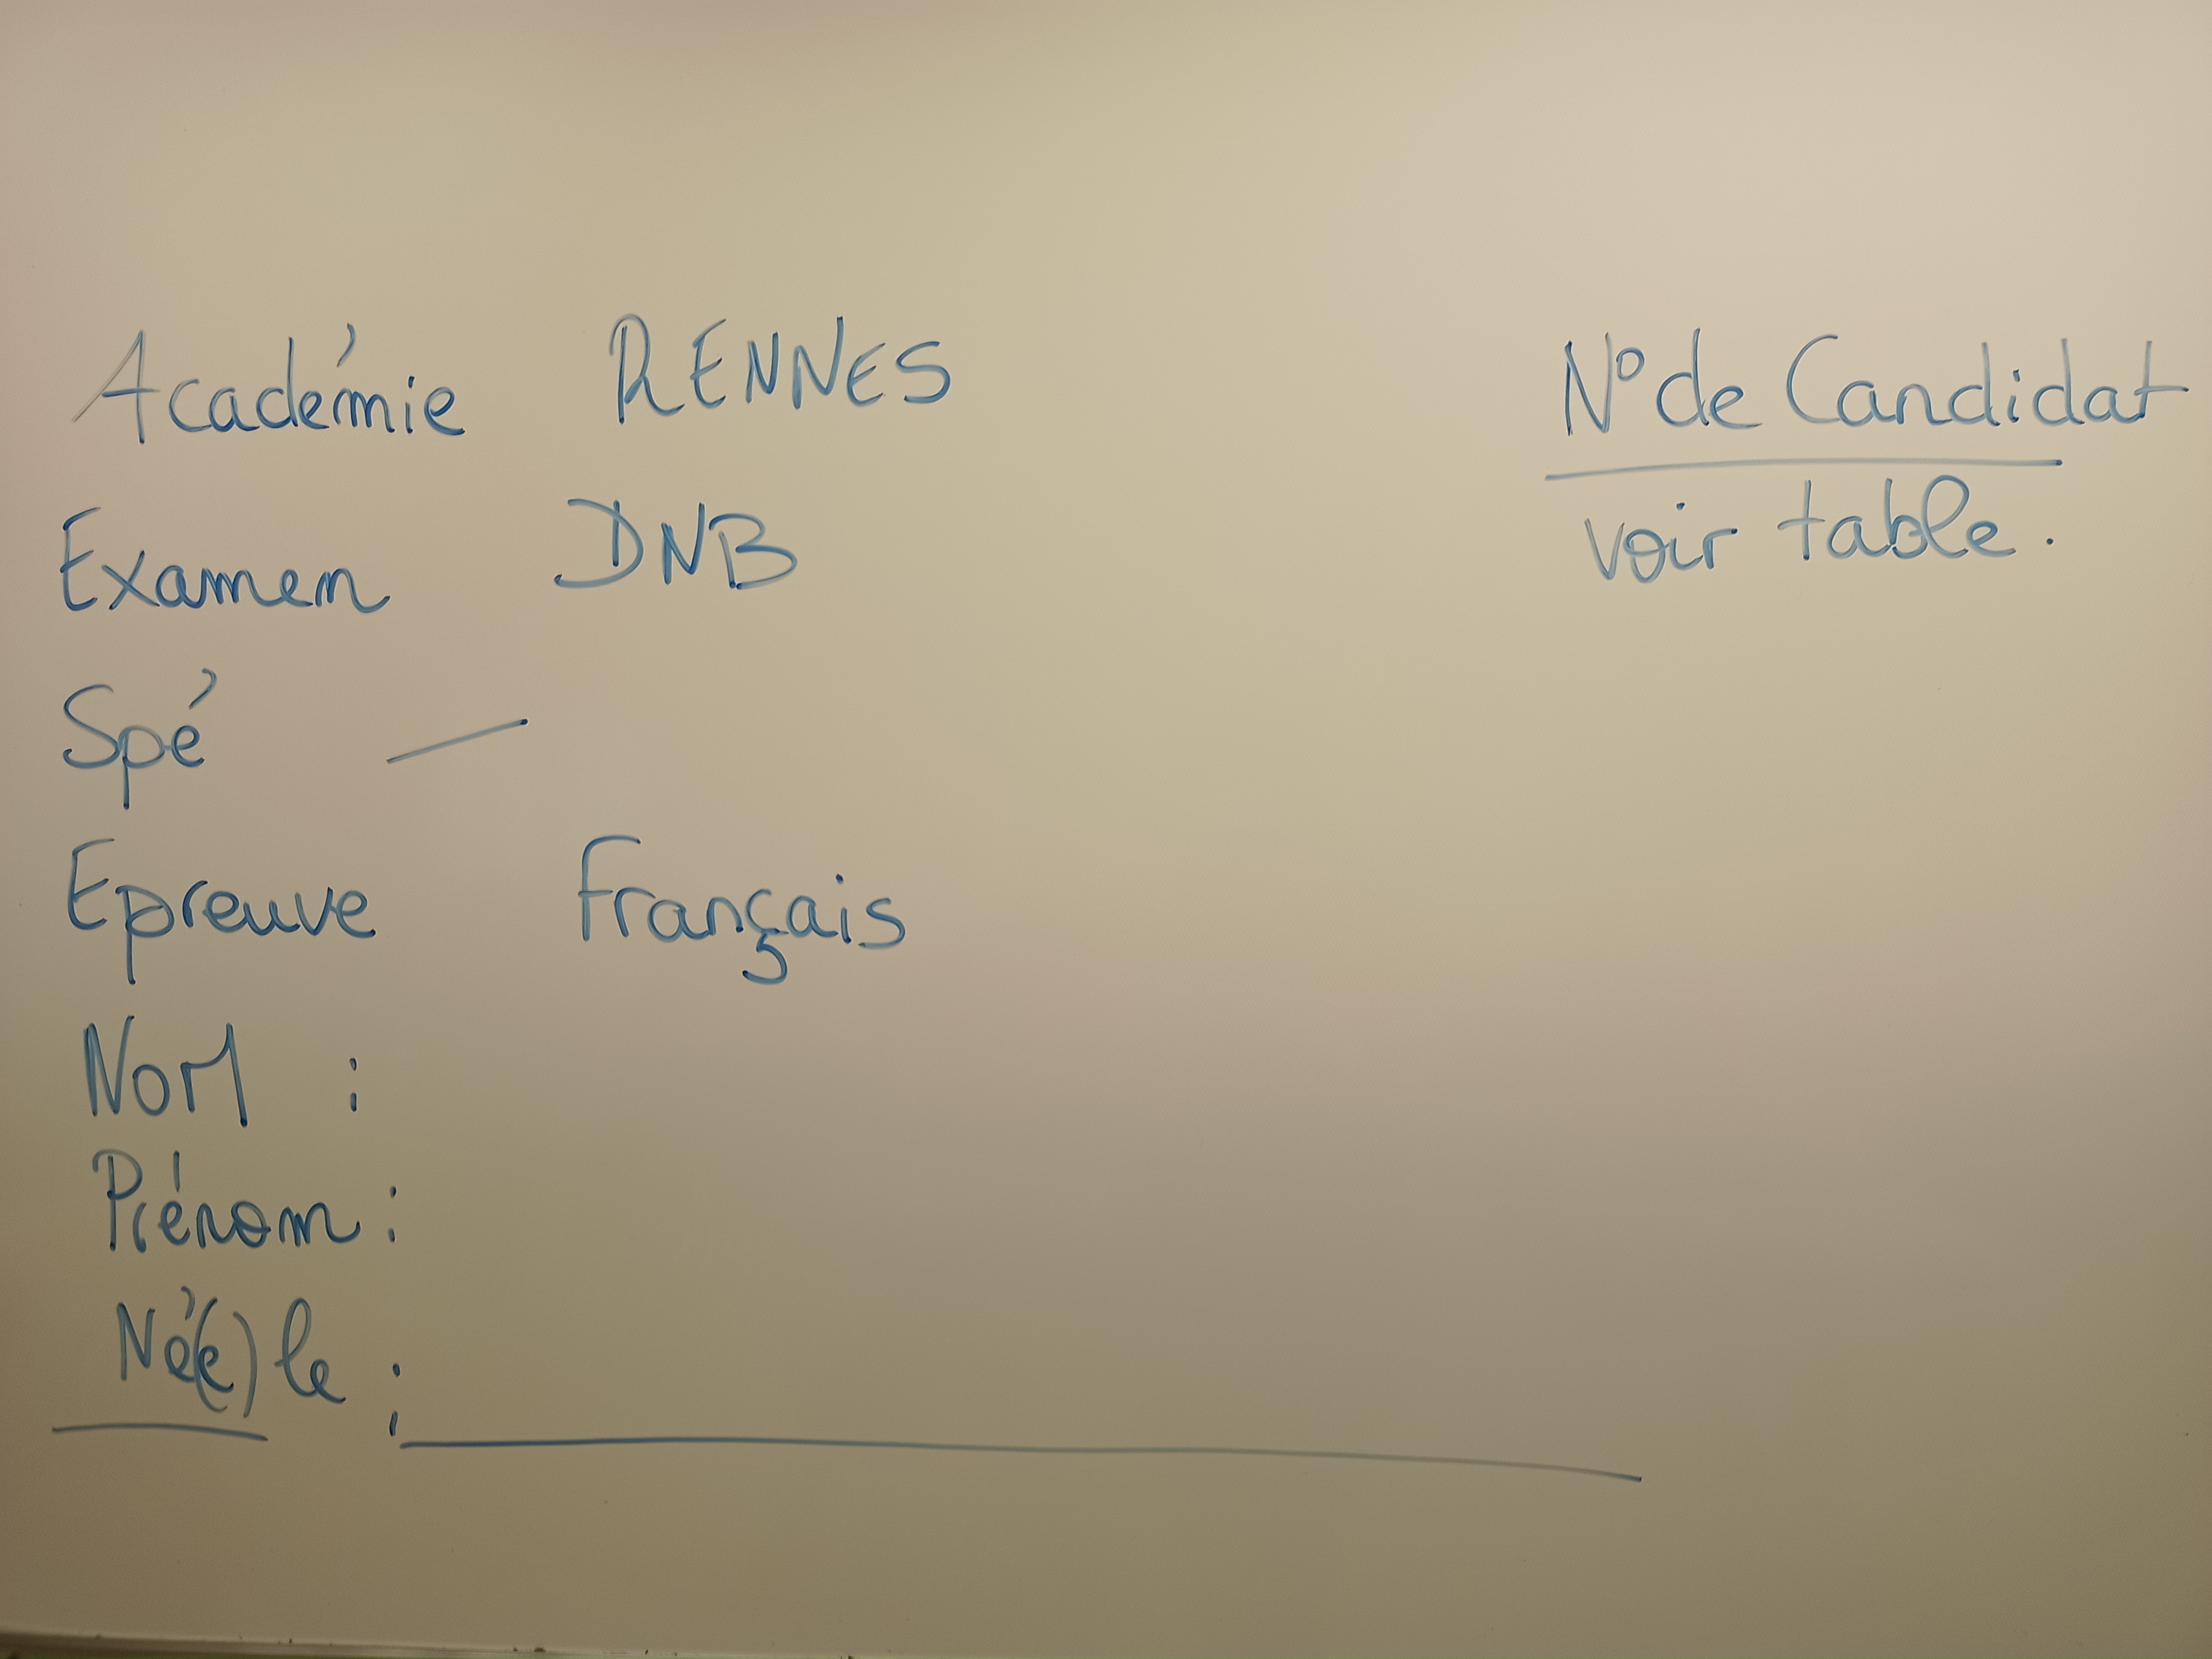 Académie RENNES
N° de Candidat
voir table.
Examen DNB
Spé —
Epreuve Français
NOM :
Prénom :
Né(e) le :